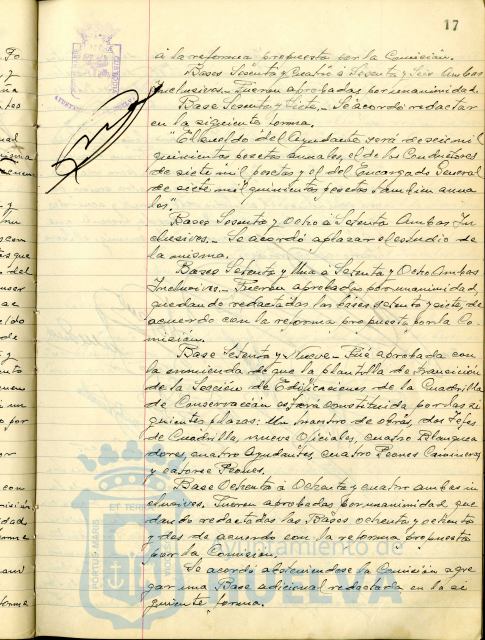 17
a la reforma propuesta por la Comisión.
Bases Sesenta y Cuatro a Sesenta y Seis Ambas
Inclusives.- Fueron aprobadas por unanimidad.
Base Sesenta y Siete.- Se acordó redactar
en la siguiente forma.
"El sueldo del Ayudante será de seis mil
quinientas pesetas anuales, el de los Conductores
de siete mil pesetas y el del Encargado General
de siete mil quinientas pesetas tambien anua
les".
Bases Sesenta y Ocho a Setenta Ambas In
clusives.- Se acordó aplazar el estudio de
la misma.
Bases Setenta y Una a Setenta y Ocho Ambas
Inclusives.- Fueron aprobadas por unanimidad
quedando redactadas las bases setenta y siete, de
acuerdo con la reforma propuesta por la Co-
misión.
Base Setenta y Nueve.- Fué aprobada con
la enmienda de que la plantilla de transición
de la Sección de Edificaciones de la Cuadrilla
de Conservación estará constituida por las si
guientes plazas: Un maestro de obras, dos Jefes
de Cuadrilla, nueve Oficiales, cuatro Blanquea
dores, cuatro Ayudantes, cuatro Peones Camineros
y catorce Peones.
Base Ochenta a Ochenta y cuatro ambas in
clusives. Fueron aprobadas por unanimidad que
dando redactadas las Bases ochenta y ochenta
y dos de acuerdo con la reforma propuesta
por la Comisión.
Se acordó absteniendose la Comisión agre
gar una Base adicional redactada en la si
guiente forma.
Ayuntamiento de
HUELVA
PORTUS MARIS
ET TERRAE